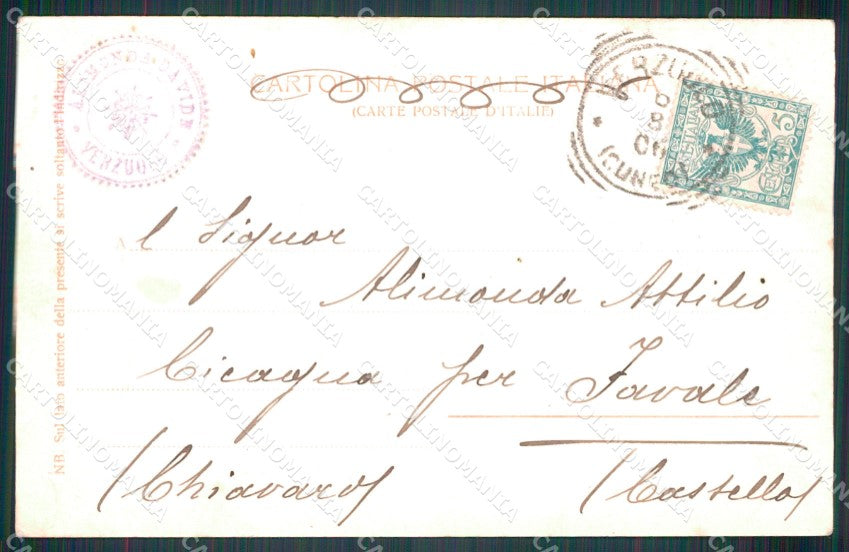 ALIMONDA DAVIDE
VERZUOLO
CARTOLINA POSTALE ITALIANA
(CARTE POSTALE D'ITALIE)
VERZUOLO
8
8
06
(CUNEO)
POSTE ITALIANE
5
NB. Sul lato anteriore della presente si scrive soltanto l'indirizzo
Al Signor
Alimonda Attilio
Cicagna per Favale
(Chiavari) (Castello)
CARTOLINOMANIA